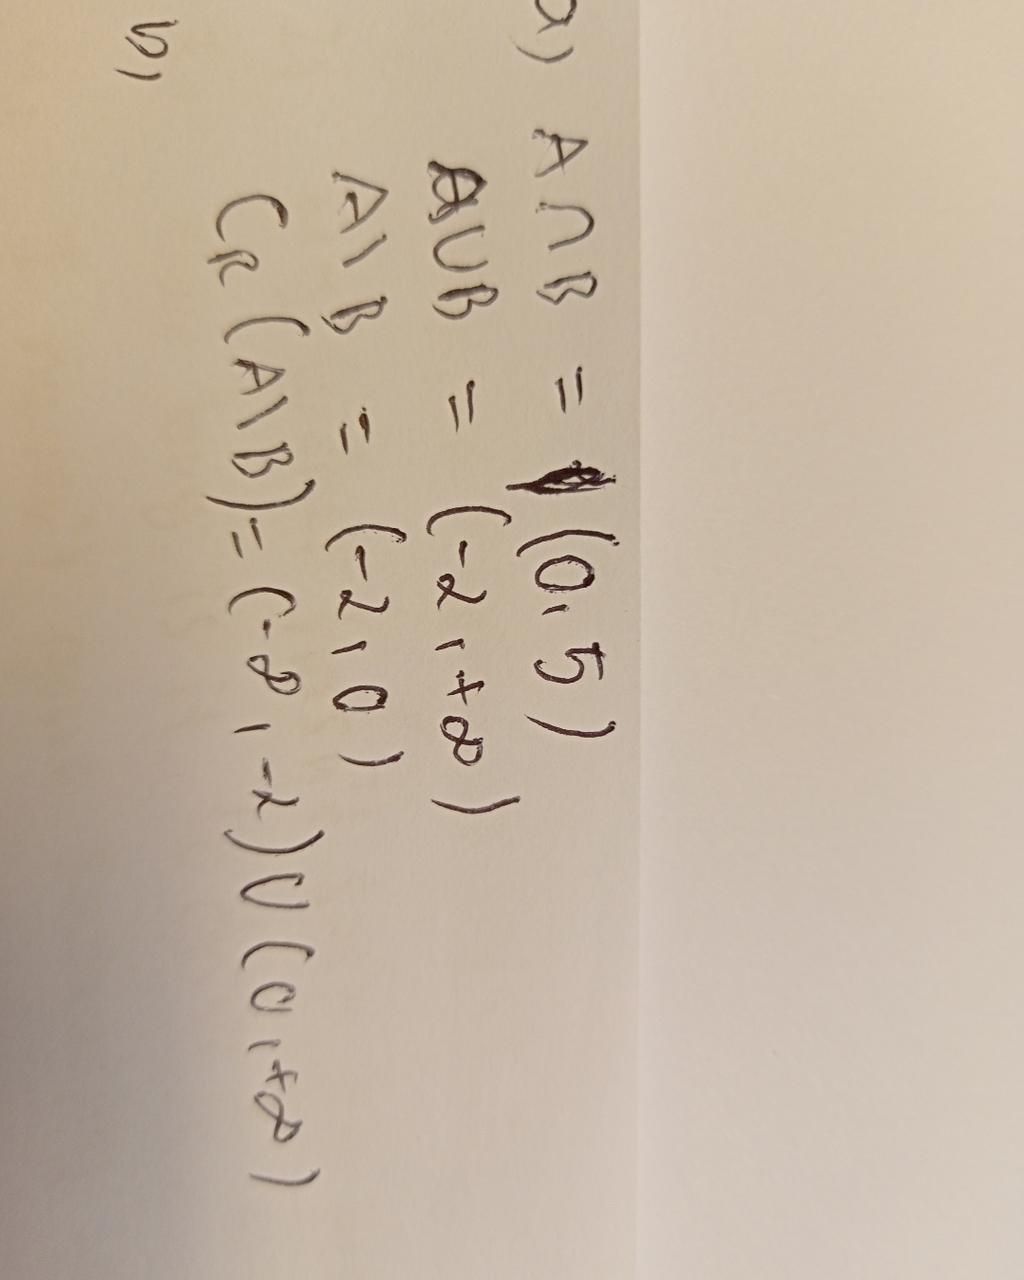 a) A ∩ B = (0, 5)
A∪B = (-2, +∞)
A \ B = (-2, 0)
C_R (A\B) = (-∞, -2) ∪ (0, +∞)
b)